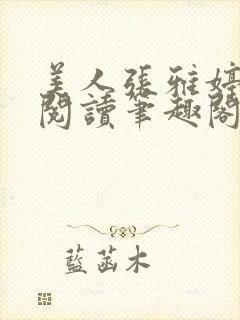 美人張雅婷
閱讀筆趣閣
藍菡木